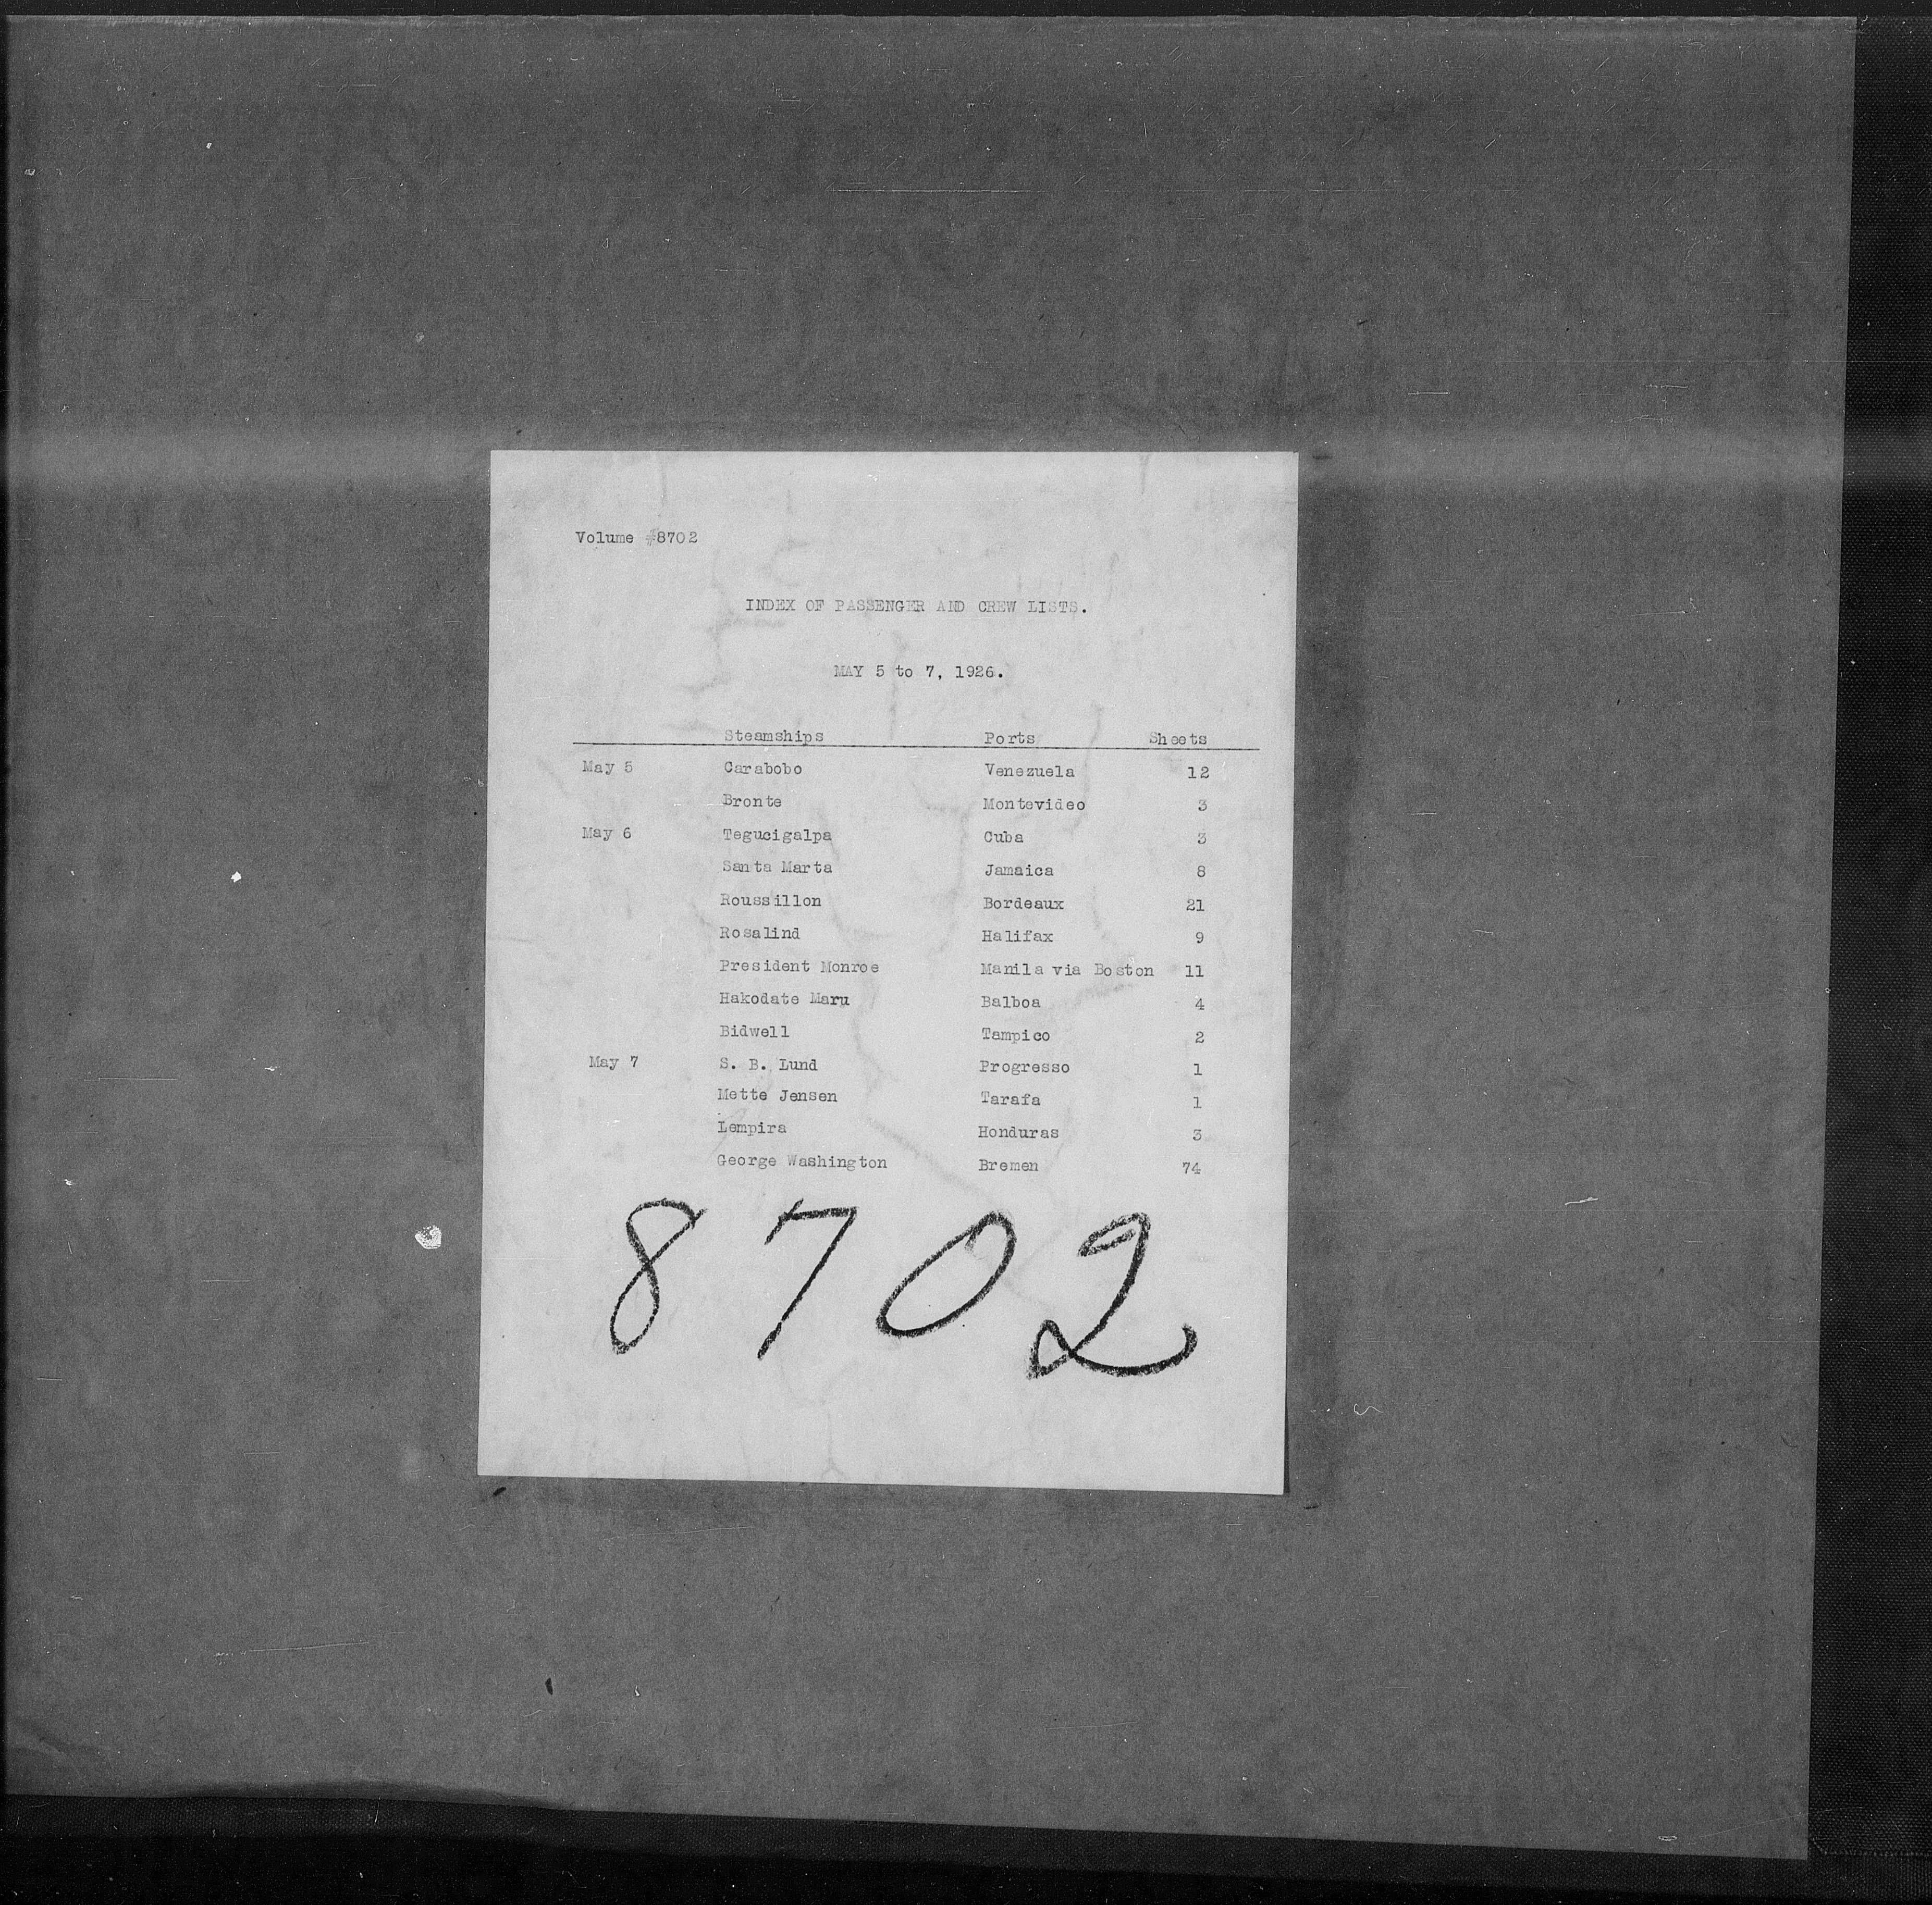 Volume #8702
INDEX OF PASSENGER AND CREW LISTS.
MAY 5 to 7, 1926.
Steamships Ports Sheets
May 5 Carabobo Venezuela 12
Bronte Montevideo 3
May 6 Tegucigalpa Cuba 3
Santa Marta Jamaica 8
Roussillon Bordeaux 21
Rosalind Halifax 9
President Monroe Manila via Boston 11
Hakodate Maru Balboa 4
Bidwell Tampico 2
May 7 S. B. Lund Progresso 1
Mette Jensen Tarafa 1
Lempira Honduras 3
George Washington Bremen 74
8702